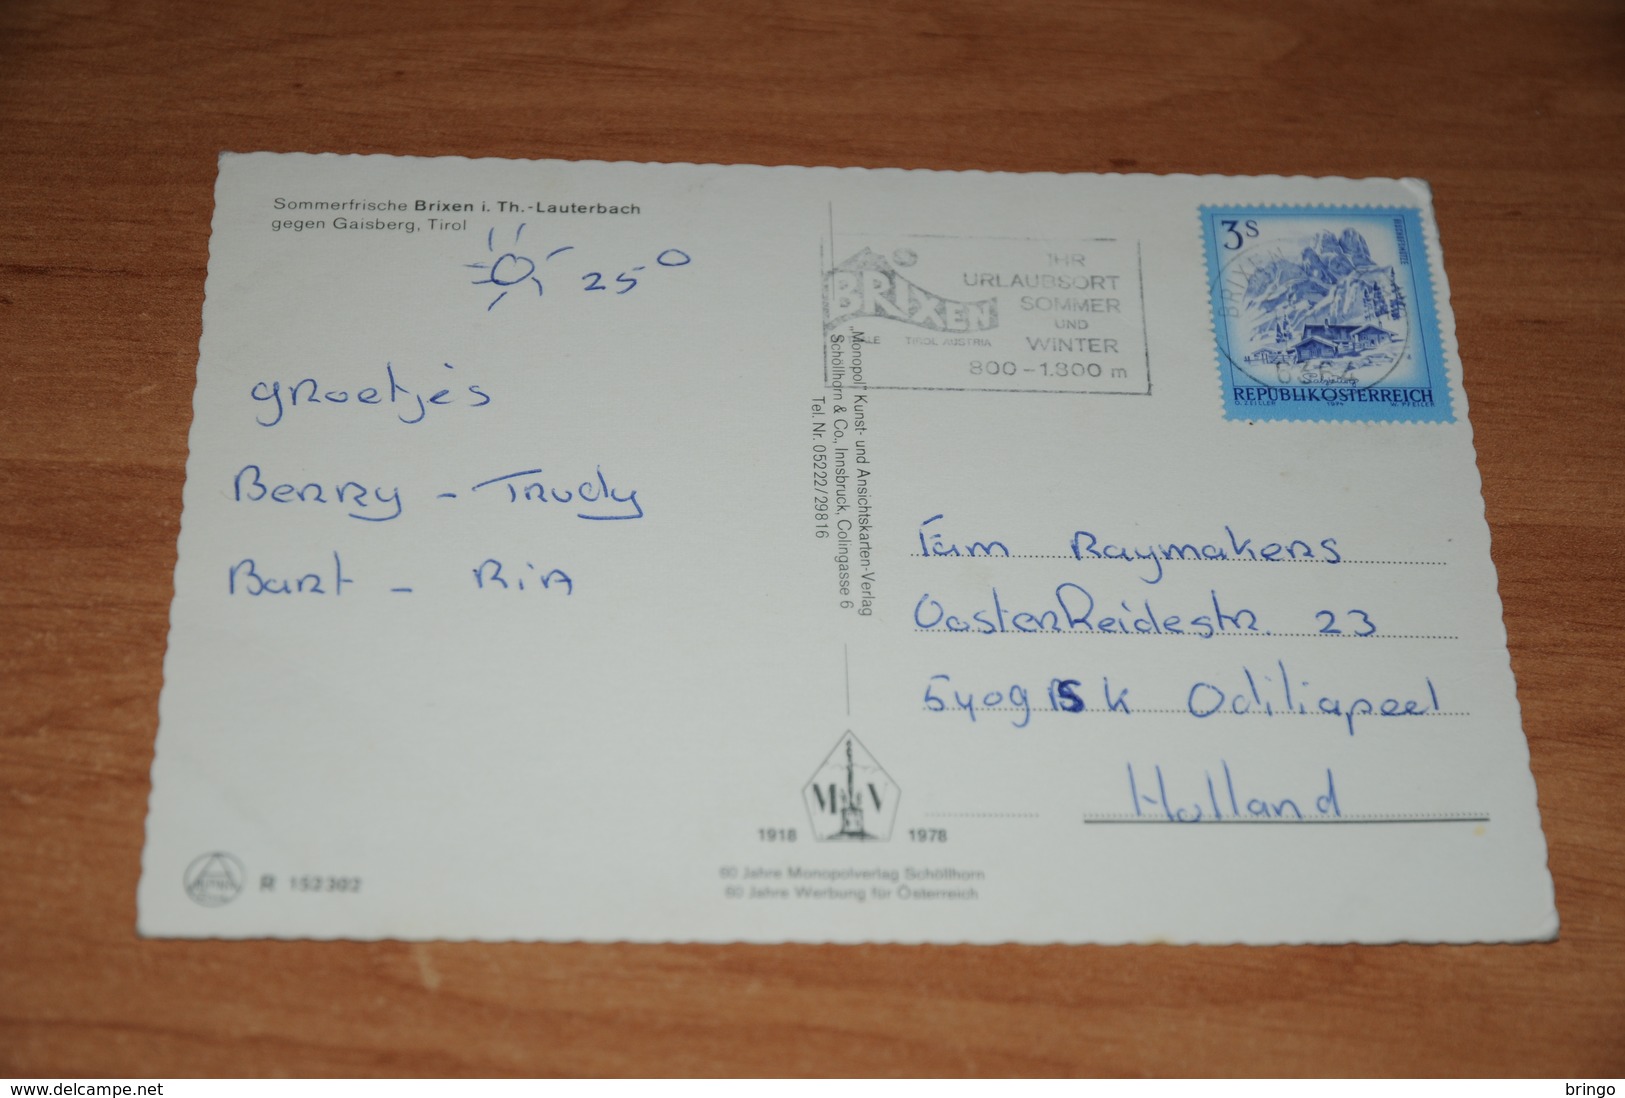 Sommerfrische Brixen i. Th.-Lauterbach
gegen Gaisberg, Tirol
25°
groetjes
Berry - Trudy
Bart - Ria
BRIXEN
TIROL AUSTRIA
IHR
URLAUBSORT
SOMMER
UND
WINTER
800-1.800 m
3S
BRIXEN
REPUBLIK ÖSTERREICH
O. ZEILLER 1974 W. PFEILER
„Monopol" Kunst- und Ansichtskarten-Verlag
Schöllhorn & Co., Innsbruck, Colingasse 6
Tel. Nr. 05222/29816
Fam Raymakers
Oosterheidestr. 23
5409 SK Odiliapeel
Holland
M V
1918 1978
60 Jahre Monopolverlag Schöllhorn
60 Jahre Werbung für Österreich
R 152302
www.delcampe.net
bringo